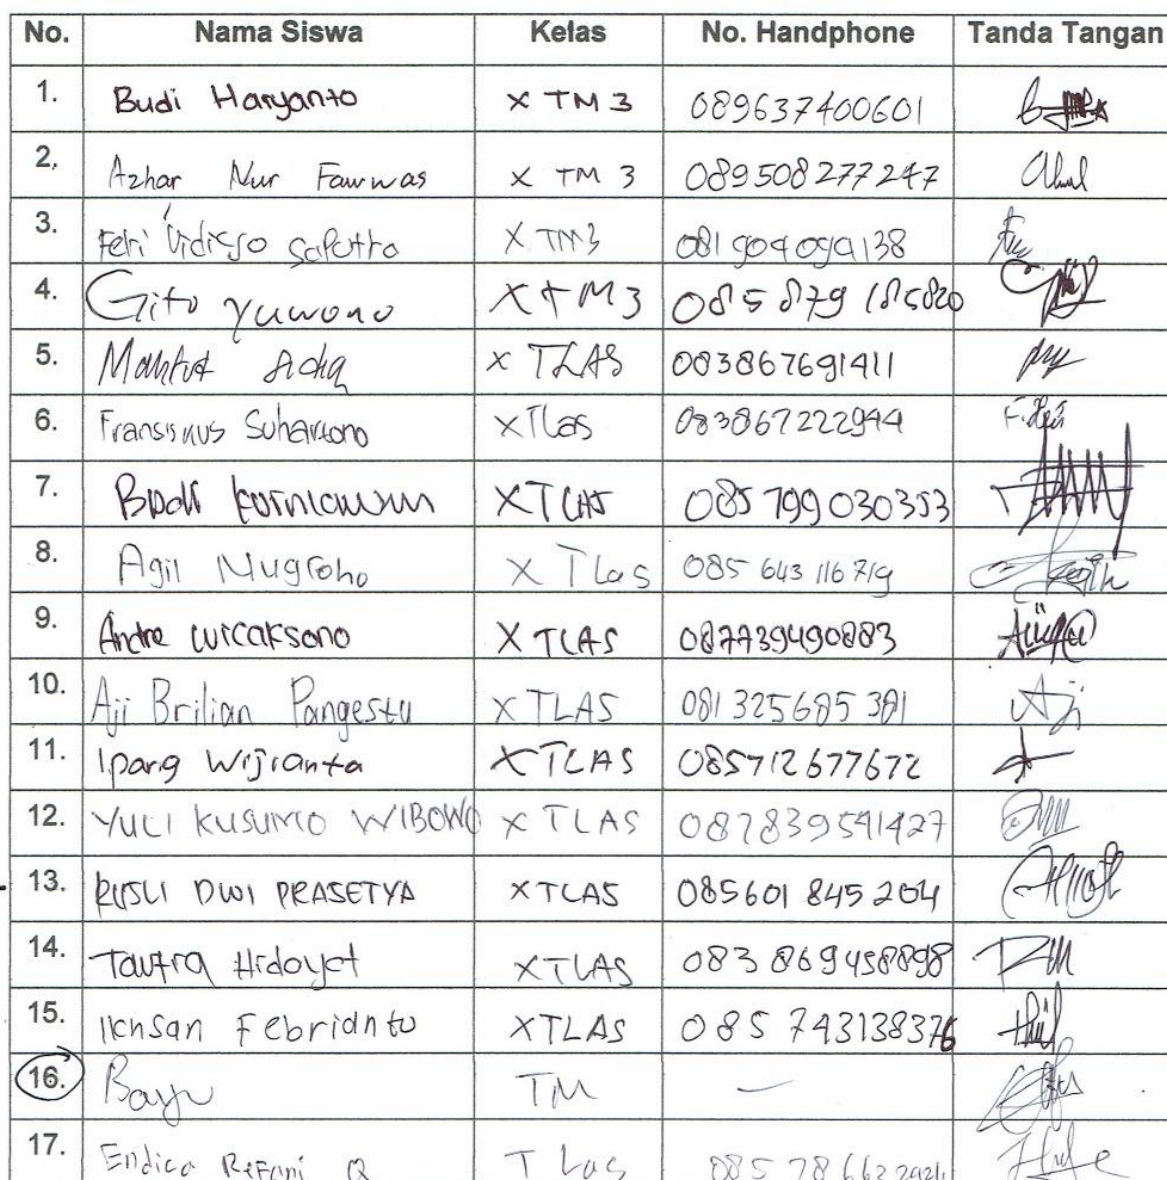 No. Nama Siswa Kelas No. Handphone Tanda Tangan
1. Budi Haryanto X TM 3 089637400601
2. Azhar Nur Fawwas X TM 3 089508277247
3. Saputro X TM3
4. Gito Yuwono X TM3
5. X TLAS 083867691411
6. Suhartono X Tlas 083867222944
7. X TLAS 085 799 030353
8. Agil Nugroho X TLas 085 643 116 719
9. Andre wicaksono X TLAS 087739490883
10. Aji Brilian Pangestu X TLAS 081 325685 381 Aji
11. Ipang Wijianta X TLAS 085712677672
12. YULI KUSUMO WIBOWO X TLAS 087839541427
13. RUSLI DWI PRASETYA X TLAS 085601 845 204
14. Hidayat X TLAS 083 869458898
15. Ichsan Febrianto X TLAS 085 743138376
16. Bayu TM –
17. Endica Refani TLas